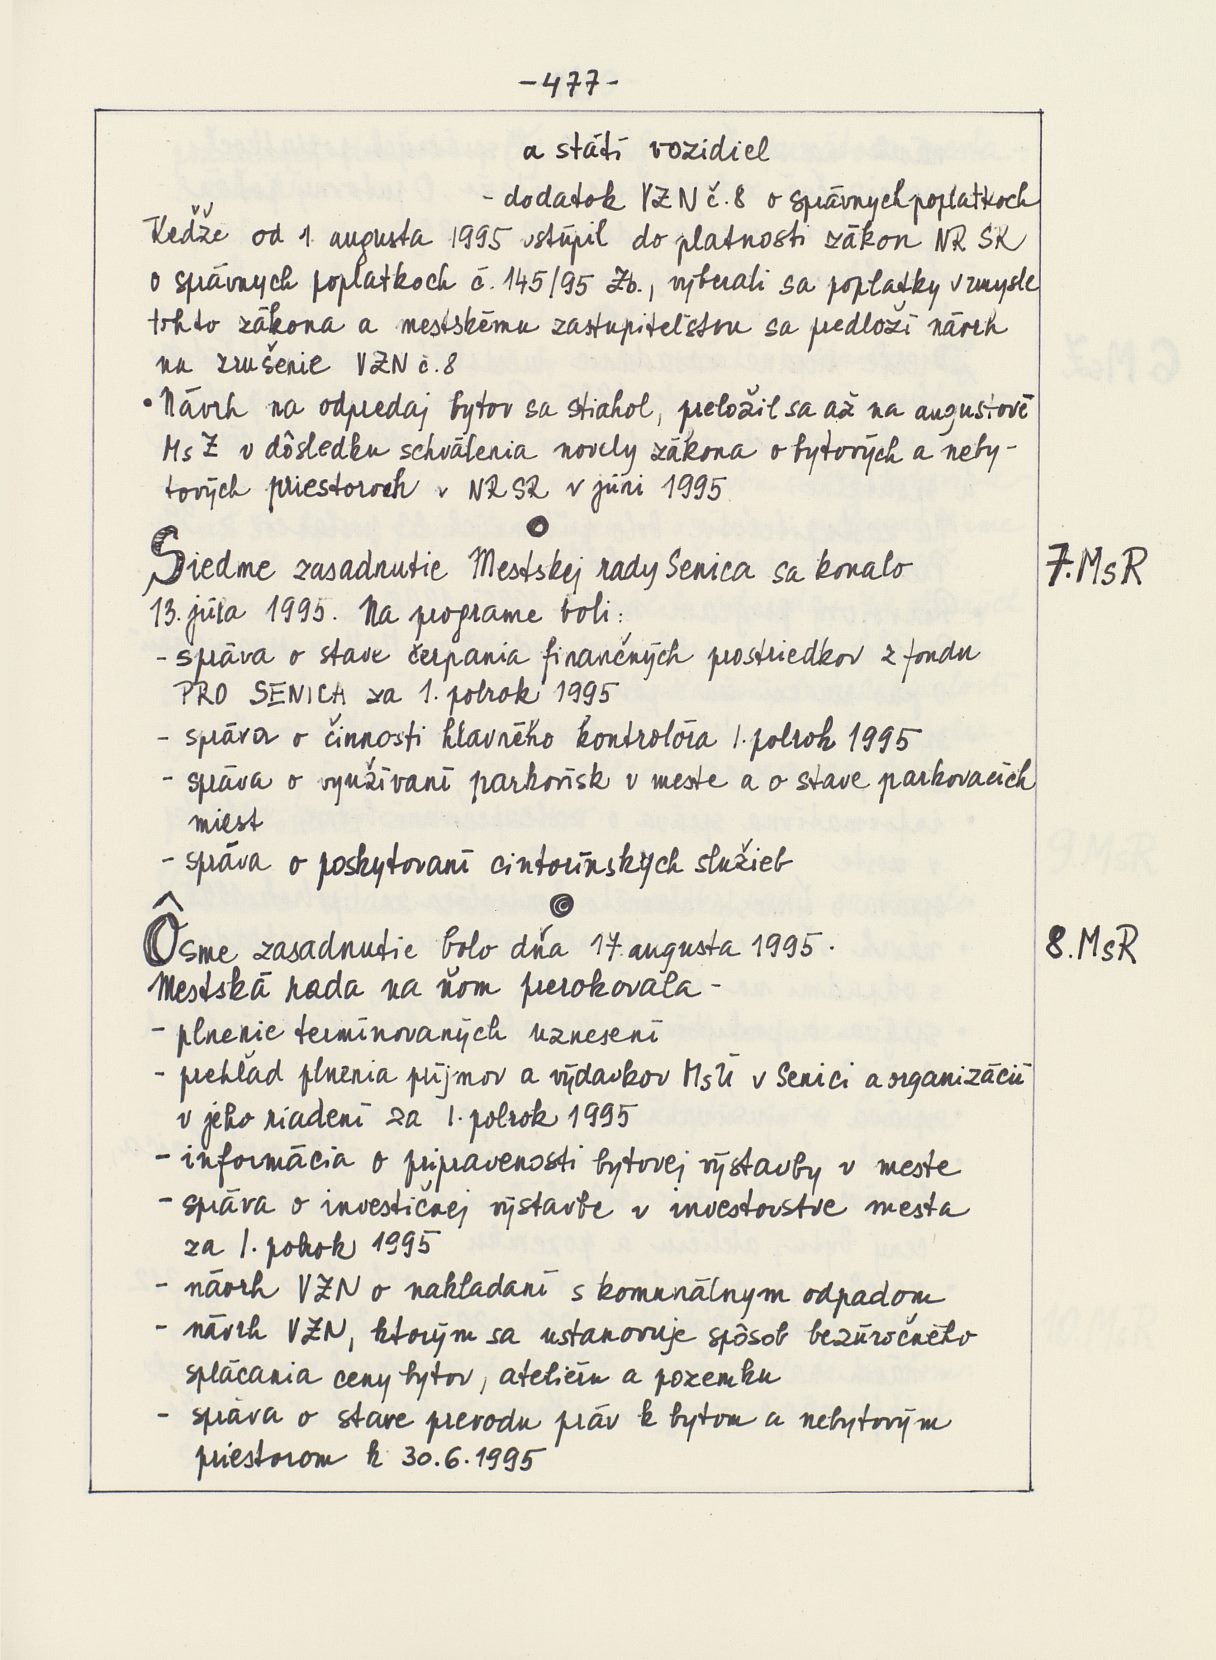 -477-
a státí vozidiel
- dodatok VZN č.8 o správnych poplatkoch
Keďže od 1. augusta 1995 vstúpil do platnosti zákon NR SR
o správnych poplatkoch č. 145/95 Zb., vyberali sa poplatky v zmysle
tohto zákona a mestskému zastupiteľstvu sa predloží návrh
na zrušenie VZN č.8
• Návrh na odpredaj bytov sa stiahol, preložil sa až na augustové
MsZ v dôsledku schválenia novely zákona o bytových a neby-
tových priestoroch v NR SR v júni 1995
Siedme zasadnutie Mestskej rady Senica sa konalo
7. MsR
13. júla 1995. Na programe boli:
- správa o stave čerpania finančných prostriedkov z fondu
PRO SENICA za 1. polrok 1995
- správa o činnosti hlavného kontrolóra 1. polrok 1995
- správa o využívaní parkovísk v meste a o stave parkovacích
miest
- správa o poskytovaní cintorínskych služieb
Ôsme zasadnutie bolo dňa 17. augusta 1995.
8. MsR
Mestská rada na ňom prerokovala -
- plnenie termínovaných uznesení
- prehľad plnenia príjmov a výdavkov MsÚ v Senici a organizácií
v jeho riadení za 1. polrok 1995
- informácia o pripravenosti bytovej výstavby v meste
- správa o investičnej výstavbe v investorstve mesta
za 1. polrok 1995
- návrh VZN o nakladaní s komunálnym odpadom
- návrh VZN, ktorým sa ustanovuje spôsob bezúročného
splácania ceny bytov, ateliéru a pozemku
- správa o stave prevodu práv k bytom a nebytovým
priestorom k 30.6.1995